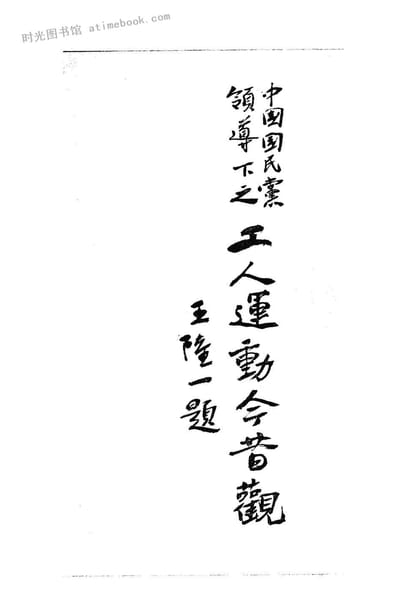 时光图书馆 atimebook.com
中國國民黨
領導下之
工人運動今昔觀
王陸一題